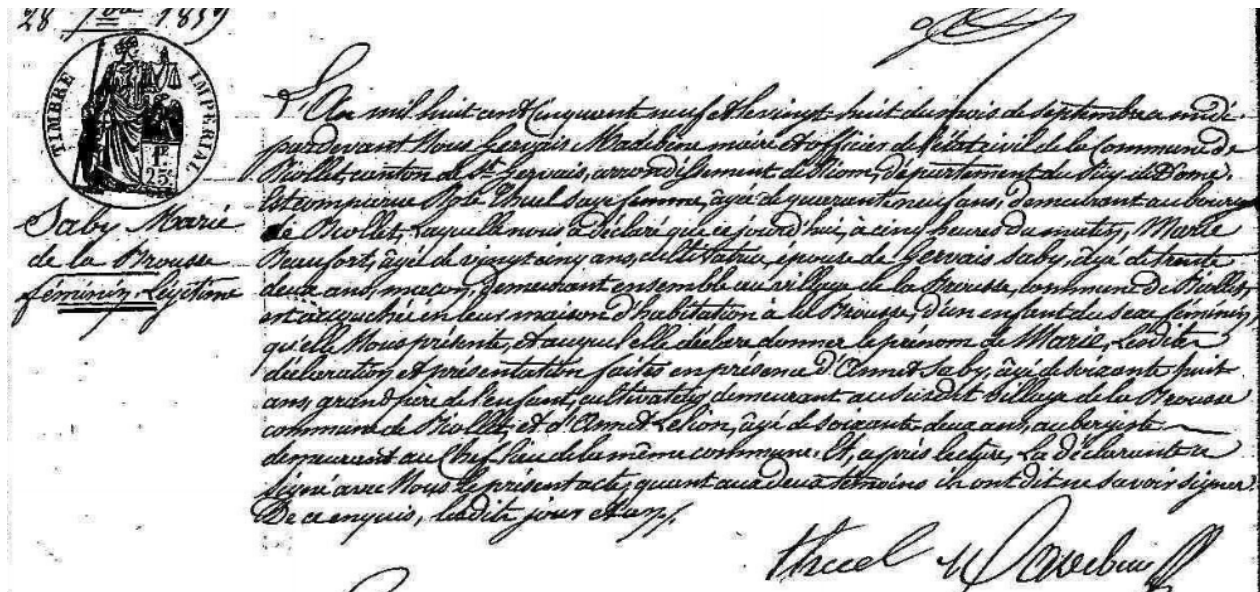 28 7bre 1859
TIMBRE IMPERIAL
1F.
25C.
Saby Marie
de la Brousse
féminin, Légitime
L'An mil huit cent cinquante neuf et le vingt-huit du mois de septembre a midi.
pardevant Nous Gervais Madebène maire et officier de l'état civil de la commune de
Biollet, canton de St Gervais, arrondissement de Riom, département du Puy de Dome.
Est comparue thuel sage femme, âgée de quarante neuf ans, demeurant au bourg
de Biollet, Laquelle nous a déclaré que ce jourd'hui, à cinq heures du matin, Marie
Beaufort, âgée de vingt cinq ans, cultivatrice, épouse de Gervais Saby, âgé de trente
deux ans, maçon, demeurant ensemble au village de la Brousse, commune de Biollet,
est accouchée en leur maison d'habitation à la Brousse, d'un enfant du sexe féminin,
qu'elle Nous présente, et auquel elle déclare donner le prénom de Marie, Lesdites
déclaration et présentation faites en présence d'Annet Saby, âgé de soixante huit
ans, grand père de l'enfant, cultivateur, demeurant au susdit village de la Brousse
commune de Biollet, et d'Annet âgé de soixante deux ans, aubergiste
demeurant au Chef lieu de la même commune. Et, après lecture, La déclarante a
signé avec Nous le présent acte, quant aux deux témoins ils ont dit ne savoir signer
De ce enquis, lesdits jour et an.
thuel Madebène